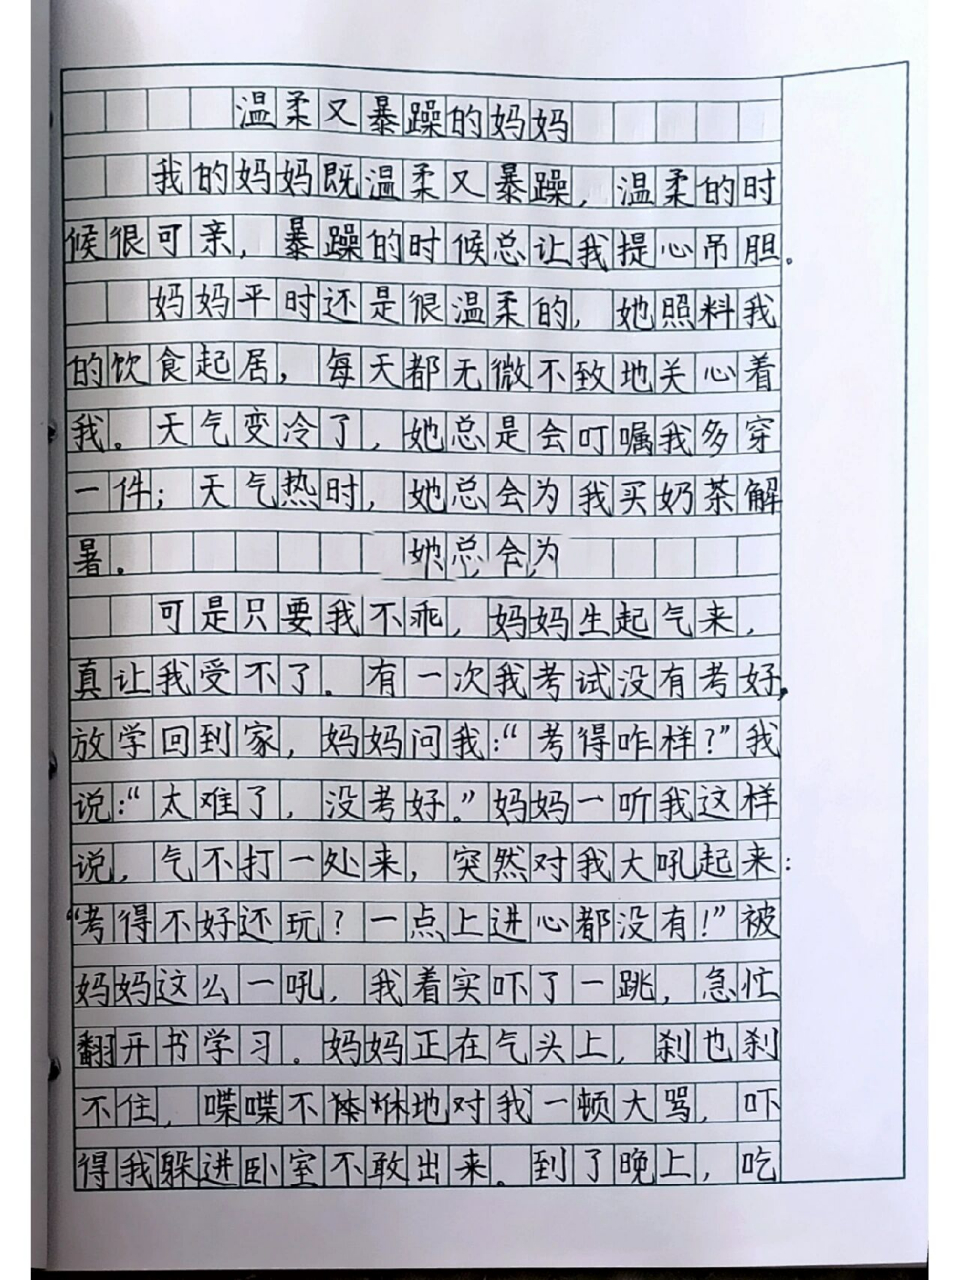 温柔又暴躁的妈妈
我的妈妈既温柔又暴躁，温柔的时
候很可亲，暴躁的时候总让我提心吊胆。
妈妈平时还是很温柔的，她照料我
的饮食起居，每天都无微不致地关心着
我。天气变冷了，她总是会叮嘱我多穿
一件；天气热时，她总会为我买奶茶解
暑。 她总会为
可是只要我不乖，妈妈生起气来，
真让我受不了。有一次我考试没有考好，
放学回到家，妈妈问我：“考得咋样？”我
说：“太难了，没考好。”妈妈一听我这样
说，气不打一处来，突然对我大吼起来：
“考得不好还玩？一点上进心都没有！”被
妈妈这么一吼，我着实吓了一跳，急忙
翻开书学习。妈妈正在气头上，刹也刹
不住，喋喋不休地对我一顿大骂，吓
得我躲进卧室不敢出来。到了晚上，吃